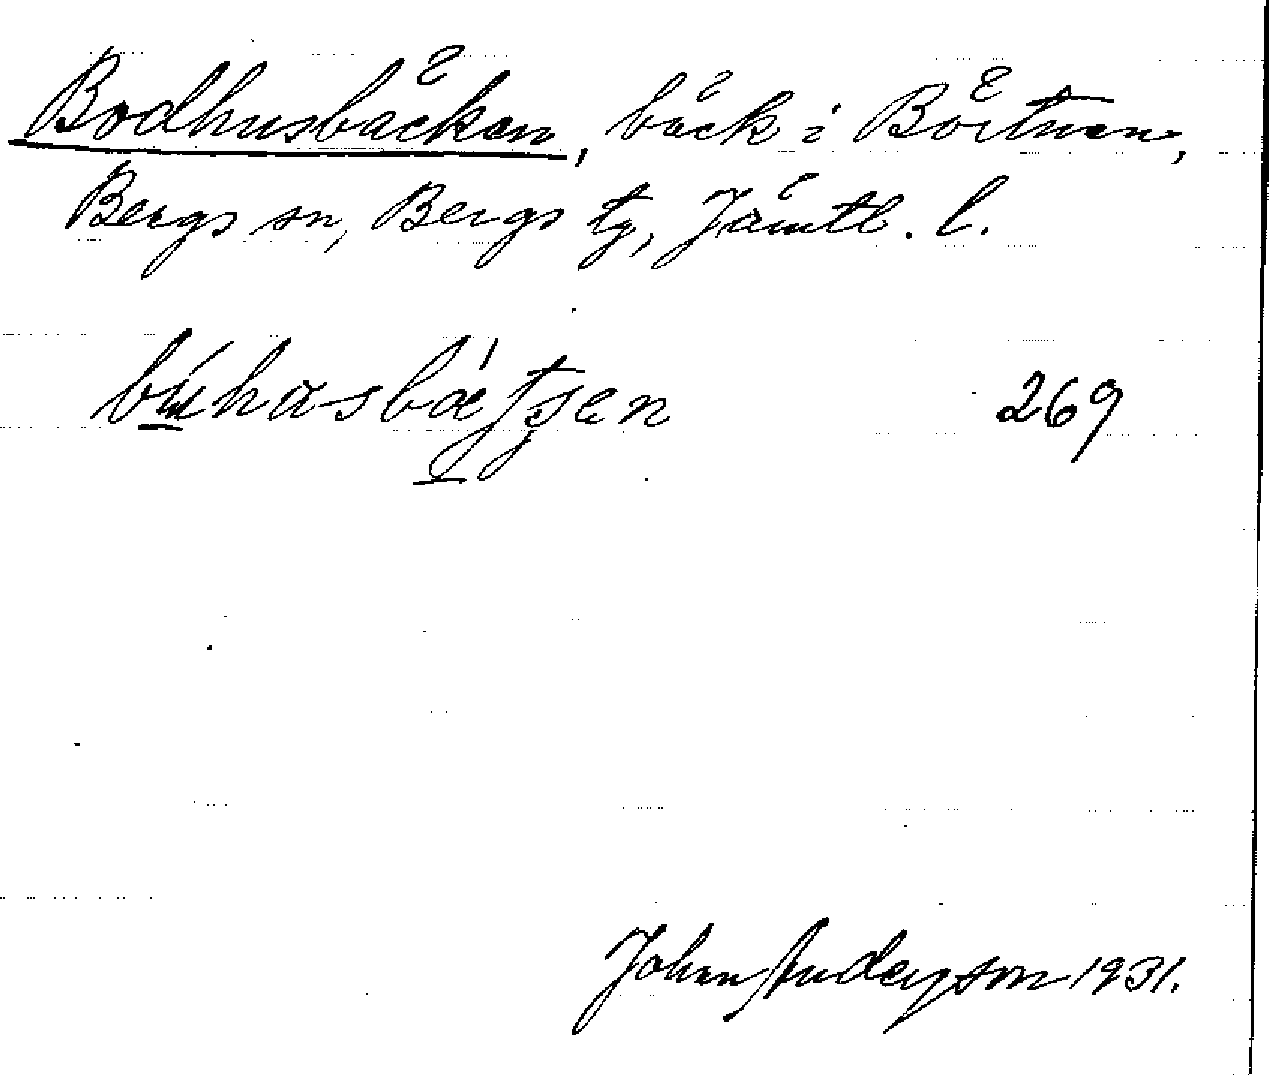 Bodhusbäcken, bäck i Börtnen,
Bergs sn, Bergs tg, Jämtl. l.
269
Johan Anderson 1931.